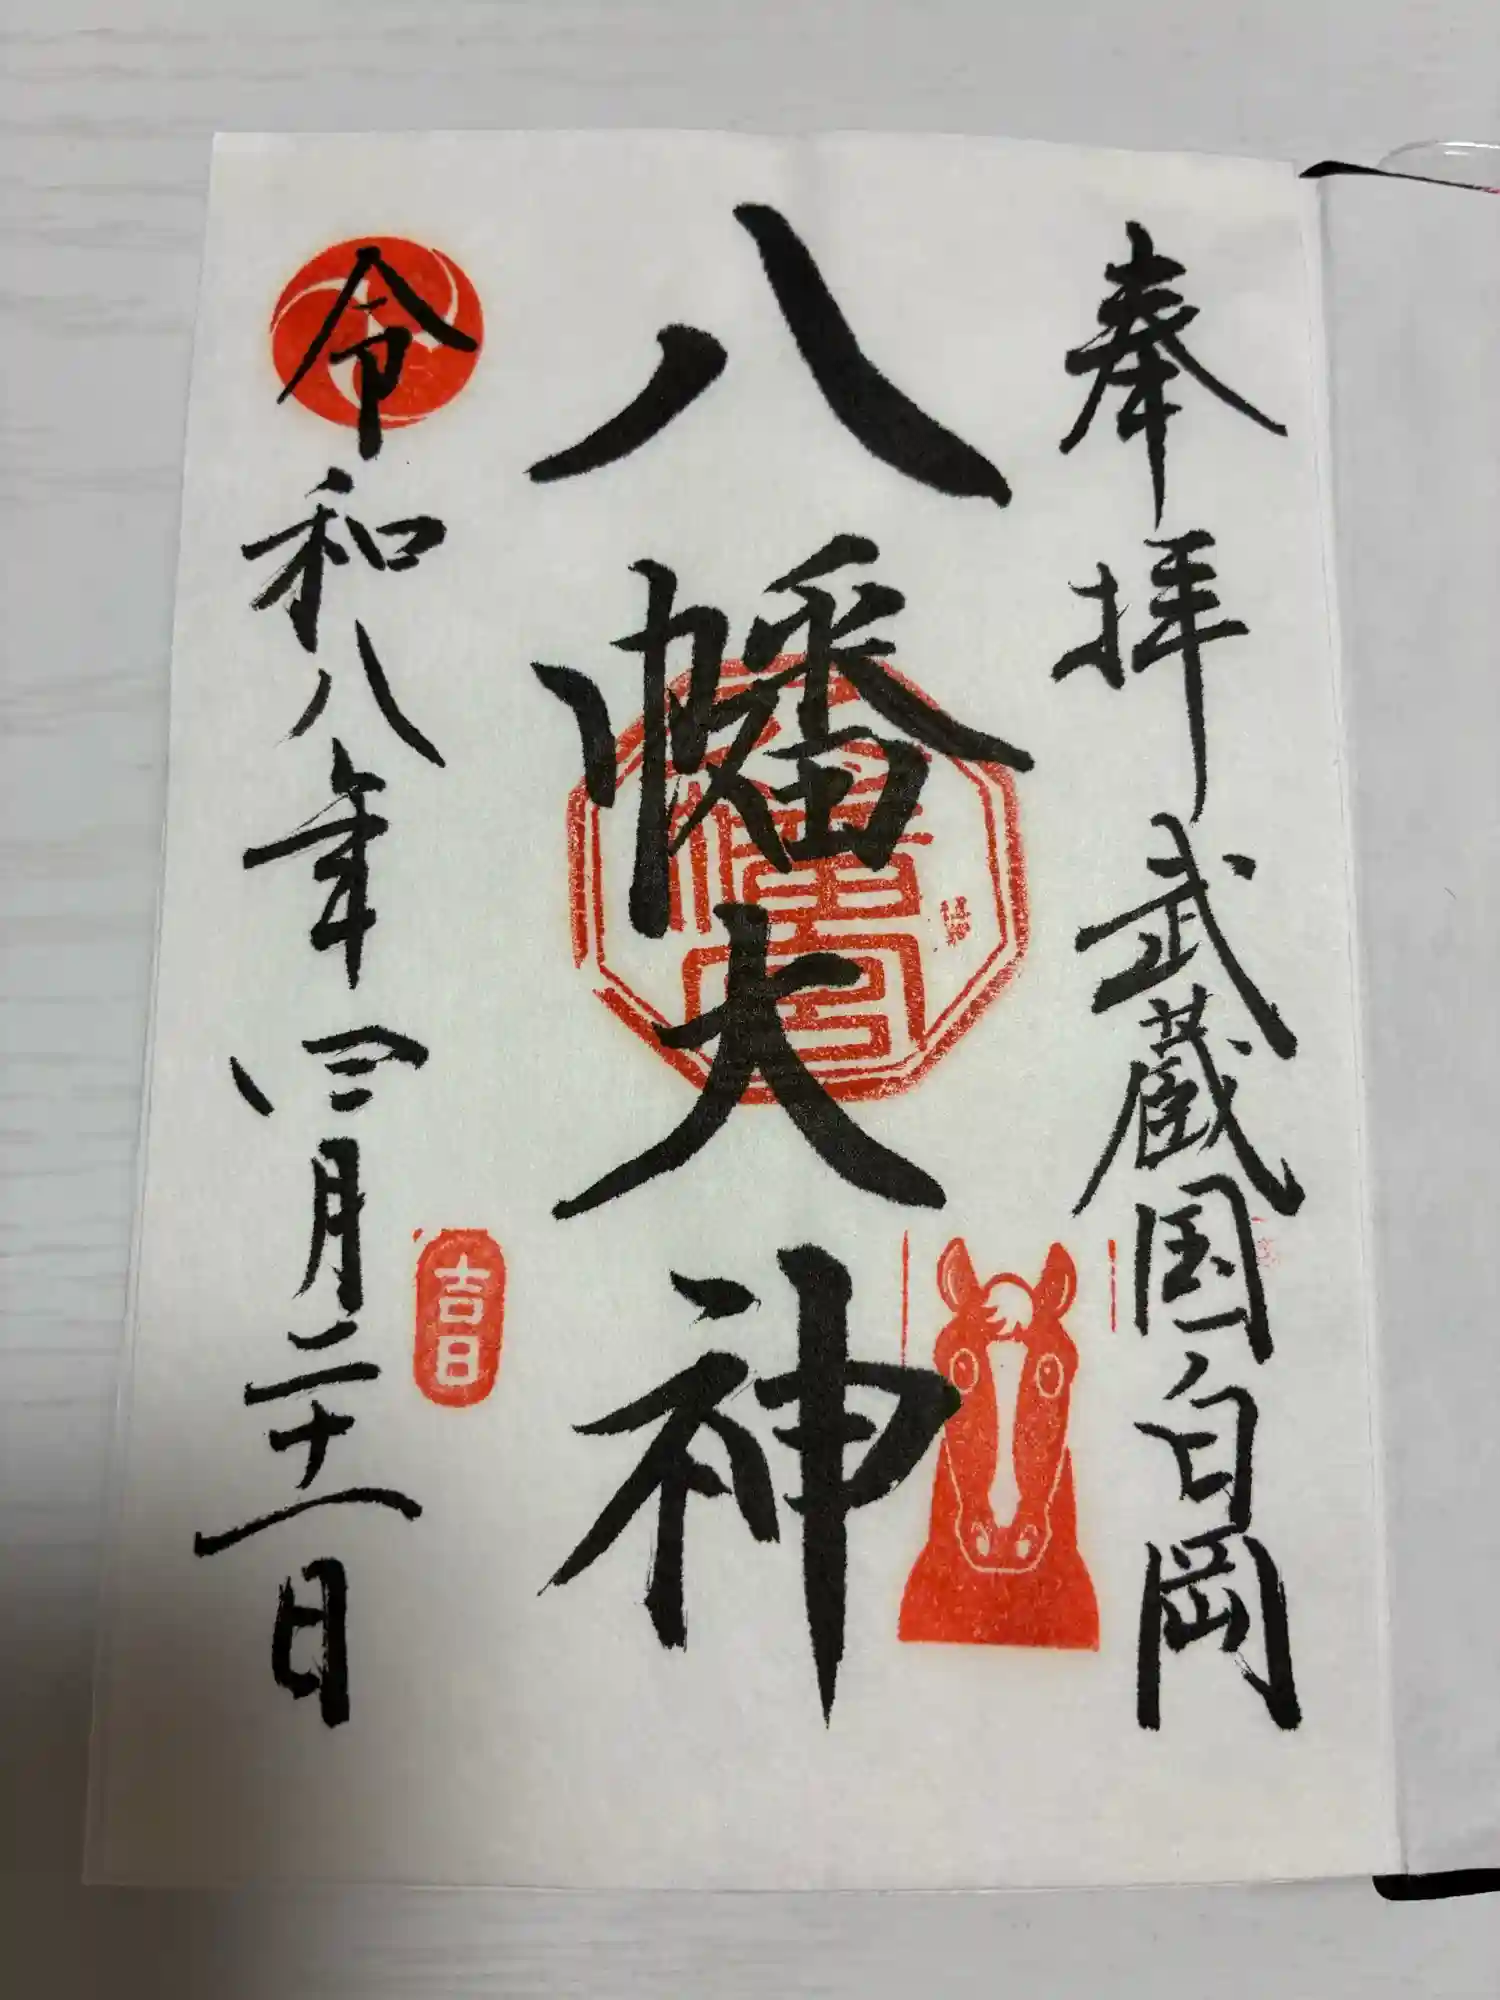 奉拝 武蔵国白岡
八幡大神
吉日
令和八年四月二十一日